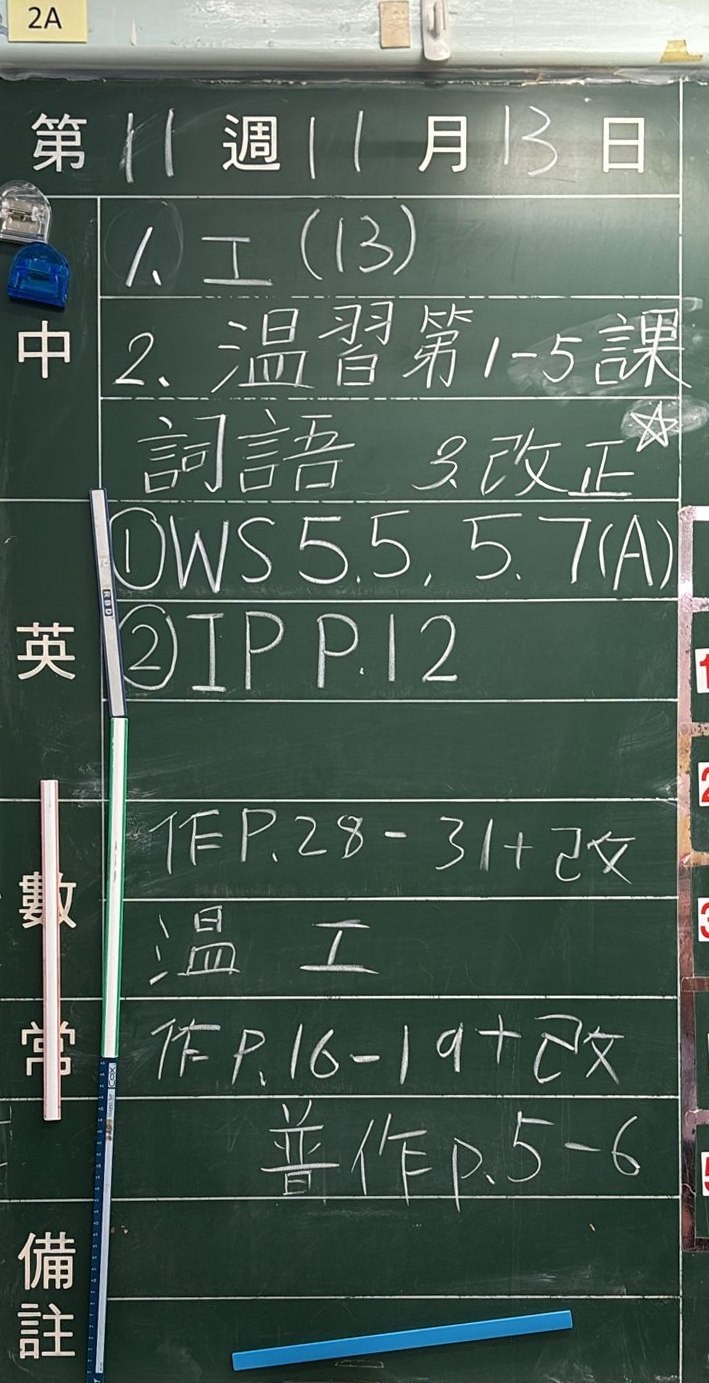 2A
第 11 週 11 月 13 日
中
1. 工 (13)
2. 温習第1-5課
詞語 3.改正☆
英
①WS 5.5, 5.7(A)
②IP P.12
數
作P.28-31+改
温 工
常
作P.16-19+改
普作p.5-6
備註
1
2
3
5